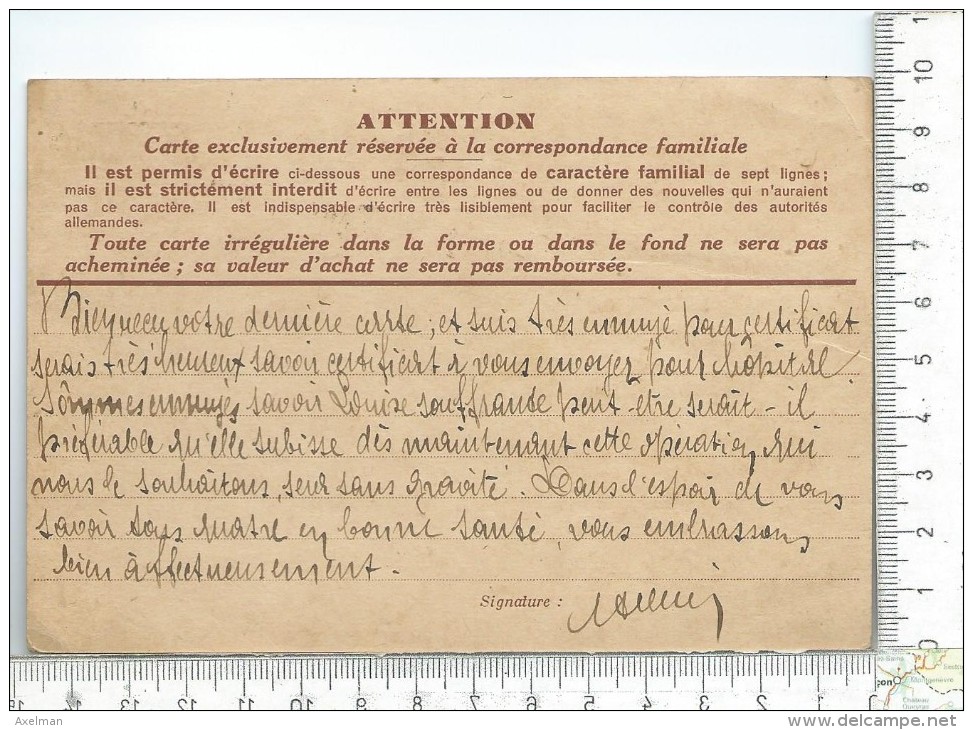 ATTENTION
Carte exclusivement réservée à la correspondance familiale
Il est permis d'écrire ci-dessous une correspondance de caractère familial de sept lignes;
mais il est strictement interdit d'écrire entre les lignes ou de donner des nouvelles qui n'auraient
pas ce caractère. Il est indispensable d'écrire très lisiblement pour faciliter le contrôle des autorités
allemandes.
Toute carte irrégulière dans la forme ou dans le fond ne sera pas
acheminée ; sa valeur d'achat ne sera pas remboursée.
Bien reçu votre dernière carte ; et suis très ennuyé pour certificat
serais très heureux savoir certificat à vous envoyer pour hôpital
Sommes ennuyés savoir Louise souffrante peut-être serait-il
préférable qu'elle subisse dès maintenant cette opération qui
nous le souhaitons, sera sans gravité. Dans l'espoir de vous
savoir tous quatre en bonne santé, vous embrassons
bien affectueusement.
Signature :
10
9
8
7
6
5
4
3
2
1
0
13
12
11
10
9
8
7
6
5
4
3
2
1
çon
Montgenèvre
Château
Queyras
Axelman
www.delcampe.net